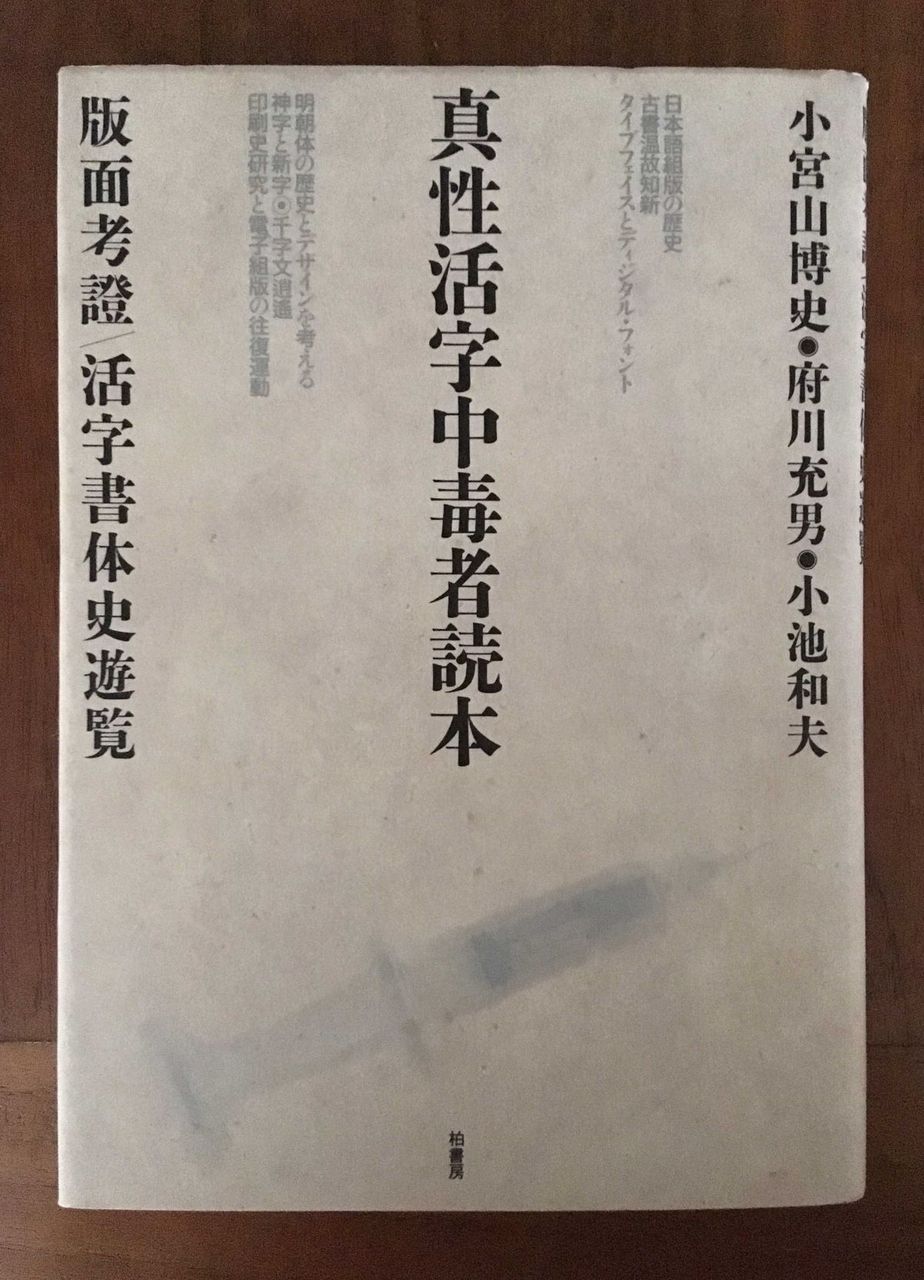 小宮山博史●府川充男●小池和夫
日本語組版の歴史
古書温故知新
タイプフェイスとディジタル・フォント
真性活字中毒者読本
明朝体の歴史とデザインを考える
神字と新字●千字文逍遥
印刷史研究と電子組版の往復運動
版面考證/活字書体史遊覧
柏書房